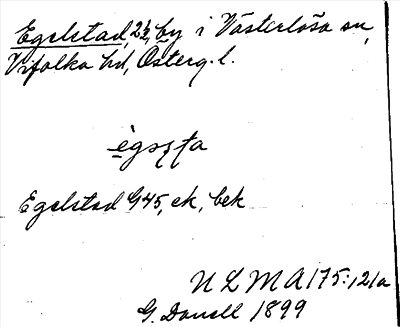 Egelstad, 2½, by i Västerlösa sn,
Vifolka hd, Österg. l.
Egelstad G45, ek, bek
ULMA 175:121a
G. Danell 1899